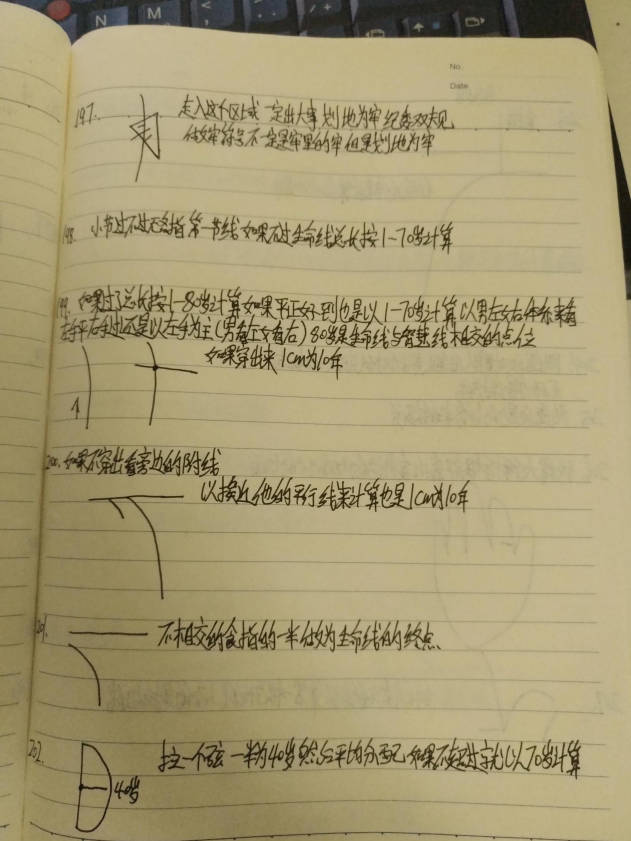 N M
No.
Date
197. 走入这个区域一定出大事 划地为牢 纪委双规
做牢符号不一定是牢里的牢 但是划地为牢
198. 小节过不过无名指第一节线 如果不过生命线总长按1-70岁计算
199. 如果过了总长按1-80岁计算 如果平正好不到也是以1-70岁计算 以男左女右体系来看
还是以左手为主(男看左女看右) 80岁是生命线与智慧线相交的点位
如果穿出来1cm为10年
200. 如果不穿出看旁边的附线
以接近他的平行线来计算也是1cm为10年
201. 不相交的食指的一半做为生命线的终点
202. 拉一个弦 一半为40岁 然后平均分配 如果不超过就以70岁计算
40岁